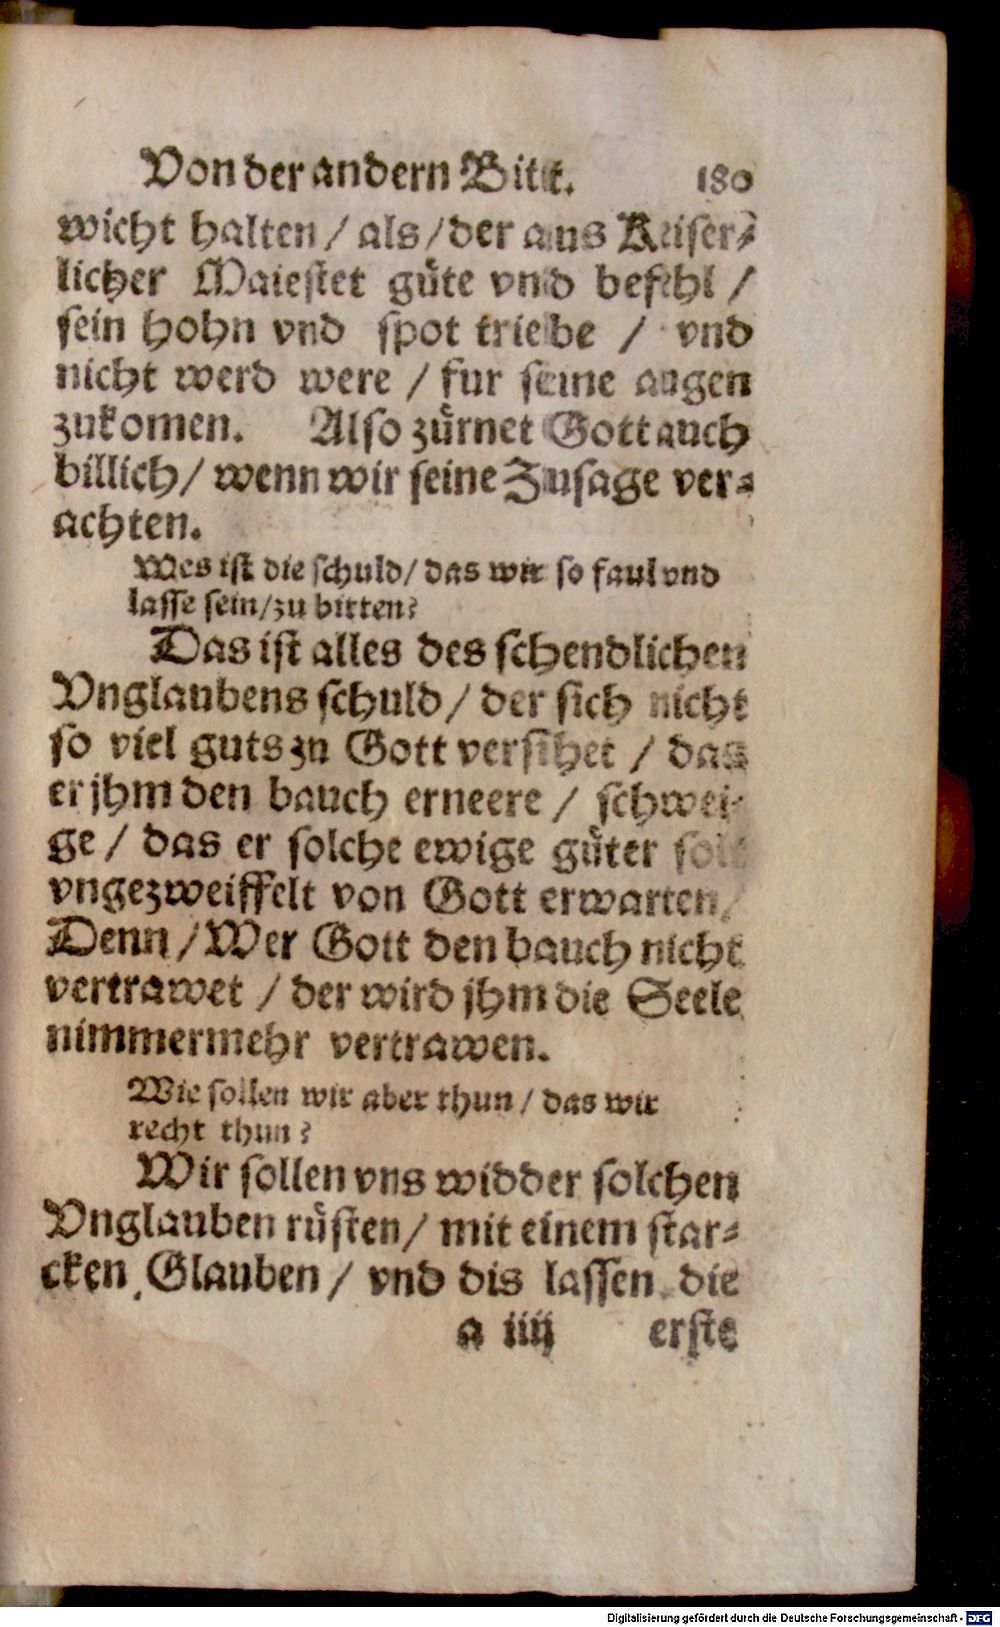 Von der andern Bitt. 180
wicht halten / als / der aus Keiser⸗
licher Maiestet guͤte vnd befehl /
sein hohn vnd spot triebe / vnd
nicht werd were / fur seine augen
zukomen. Also zuͤrnet Gott auch
billich / wenn wir seine Zusage ver⸗
achten.
Wes ist die schuld / das wir so faul vnd
lasse sein / zu bitten?
Das ist alles des schendlichen
Vnglaubens schuld / der sich nicht
so viel guts zu Gott versihet / das
er jhm den bauch erneere / schwei⸗
ge / das er solche ewige guͤter solt
vngezweiffelt von Gott erwarten /
Denn / Wer Gott den bauch nicht
vertrawet / der wird jhm die Seele
nimmermehr vertrawen.
Wie sollen wir aber thun / das wir
recht thun?
Wir sollen vns widder solchen
Vnglauben ruͤsten / mit einem star⸗
cken Glauben / vnd dis lassen die
a iiij erste
Digitalisierung gefördert durch die Deutsche Forschungsgemeinschaft - DFG